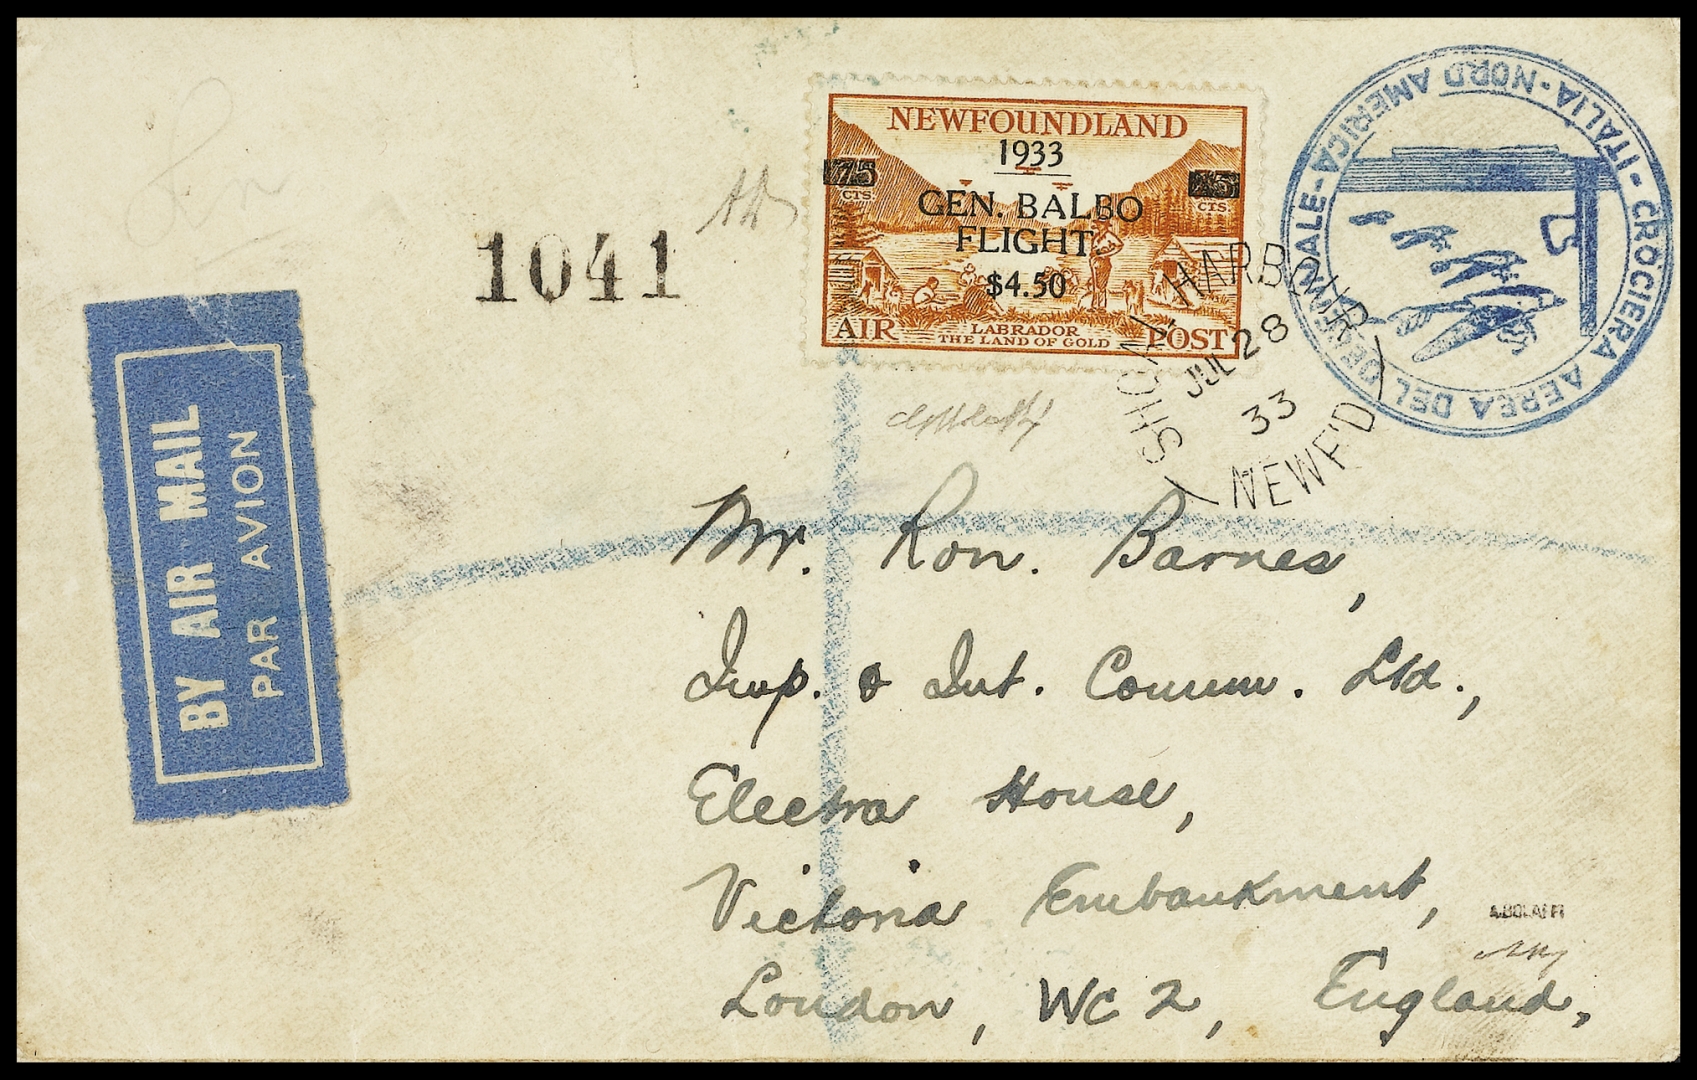 NEWFOUNDLAND
1933
75 75
CTS. CTS.
GEN. BALBO
FLIGHT
$4.50
AIR LABRADOR POST
THE LAND OF GOLD
CROCIERA AEREA DEL DECENNALE - ITALIA - NORD AMERICA -
1041
SHOAL HARBOUR
JUL 28
33
NEWF'D
BY AIR MAIL
PAR AVION
Mr. Ron. Barnes,
Imp. & Int. Comm. Ltd.,
Electra House,
Victoria Embankment,
London, WC2, England,
A.BOLAFFI